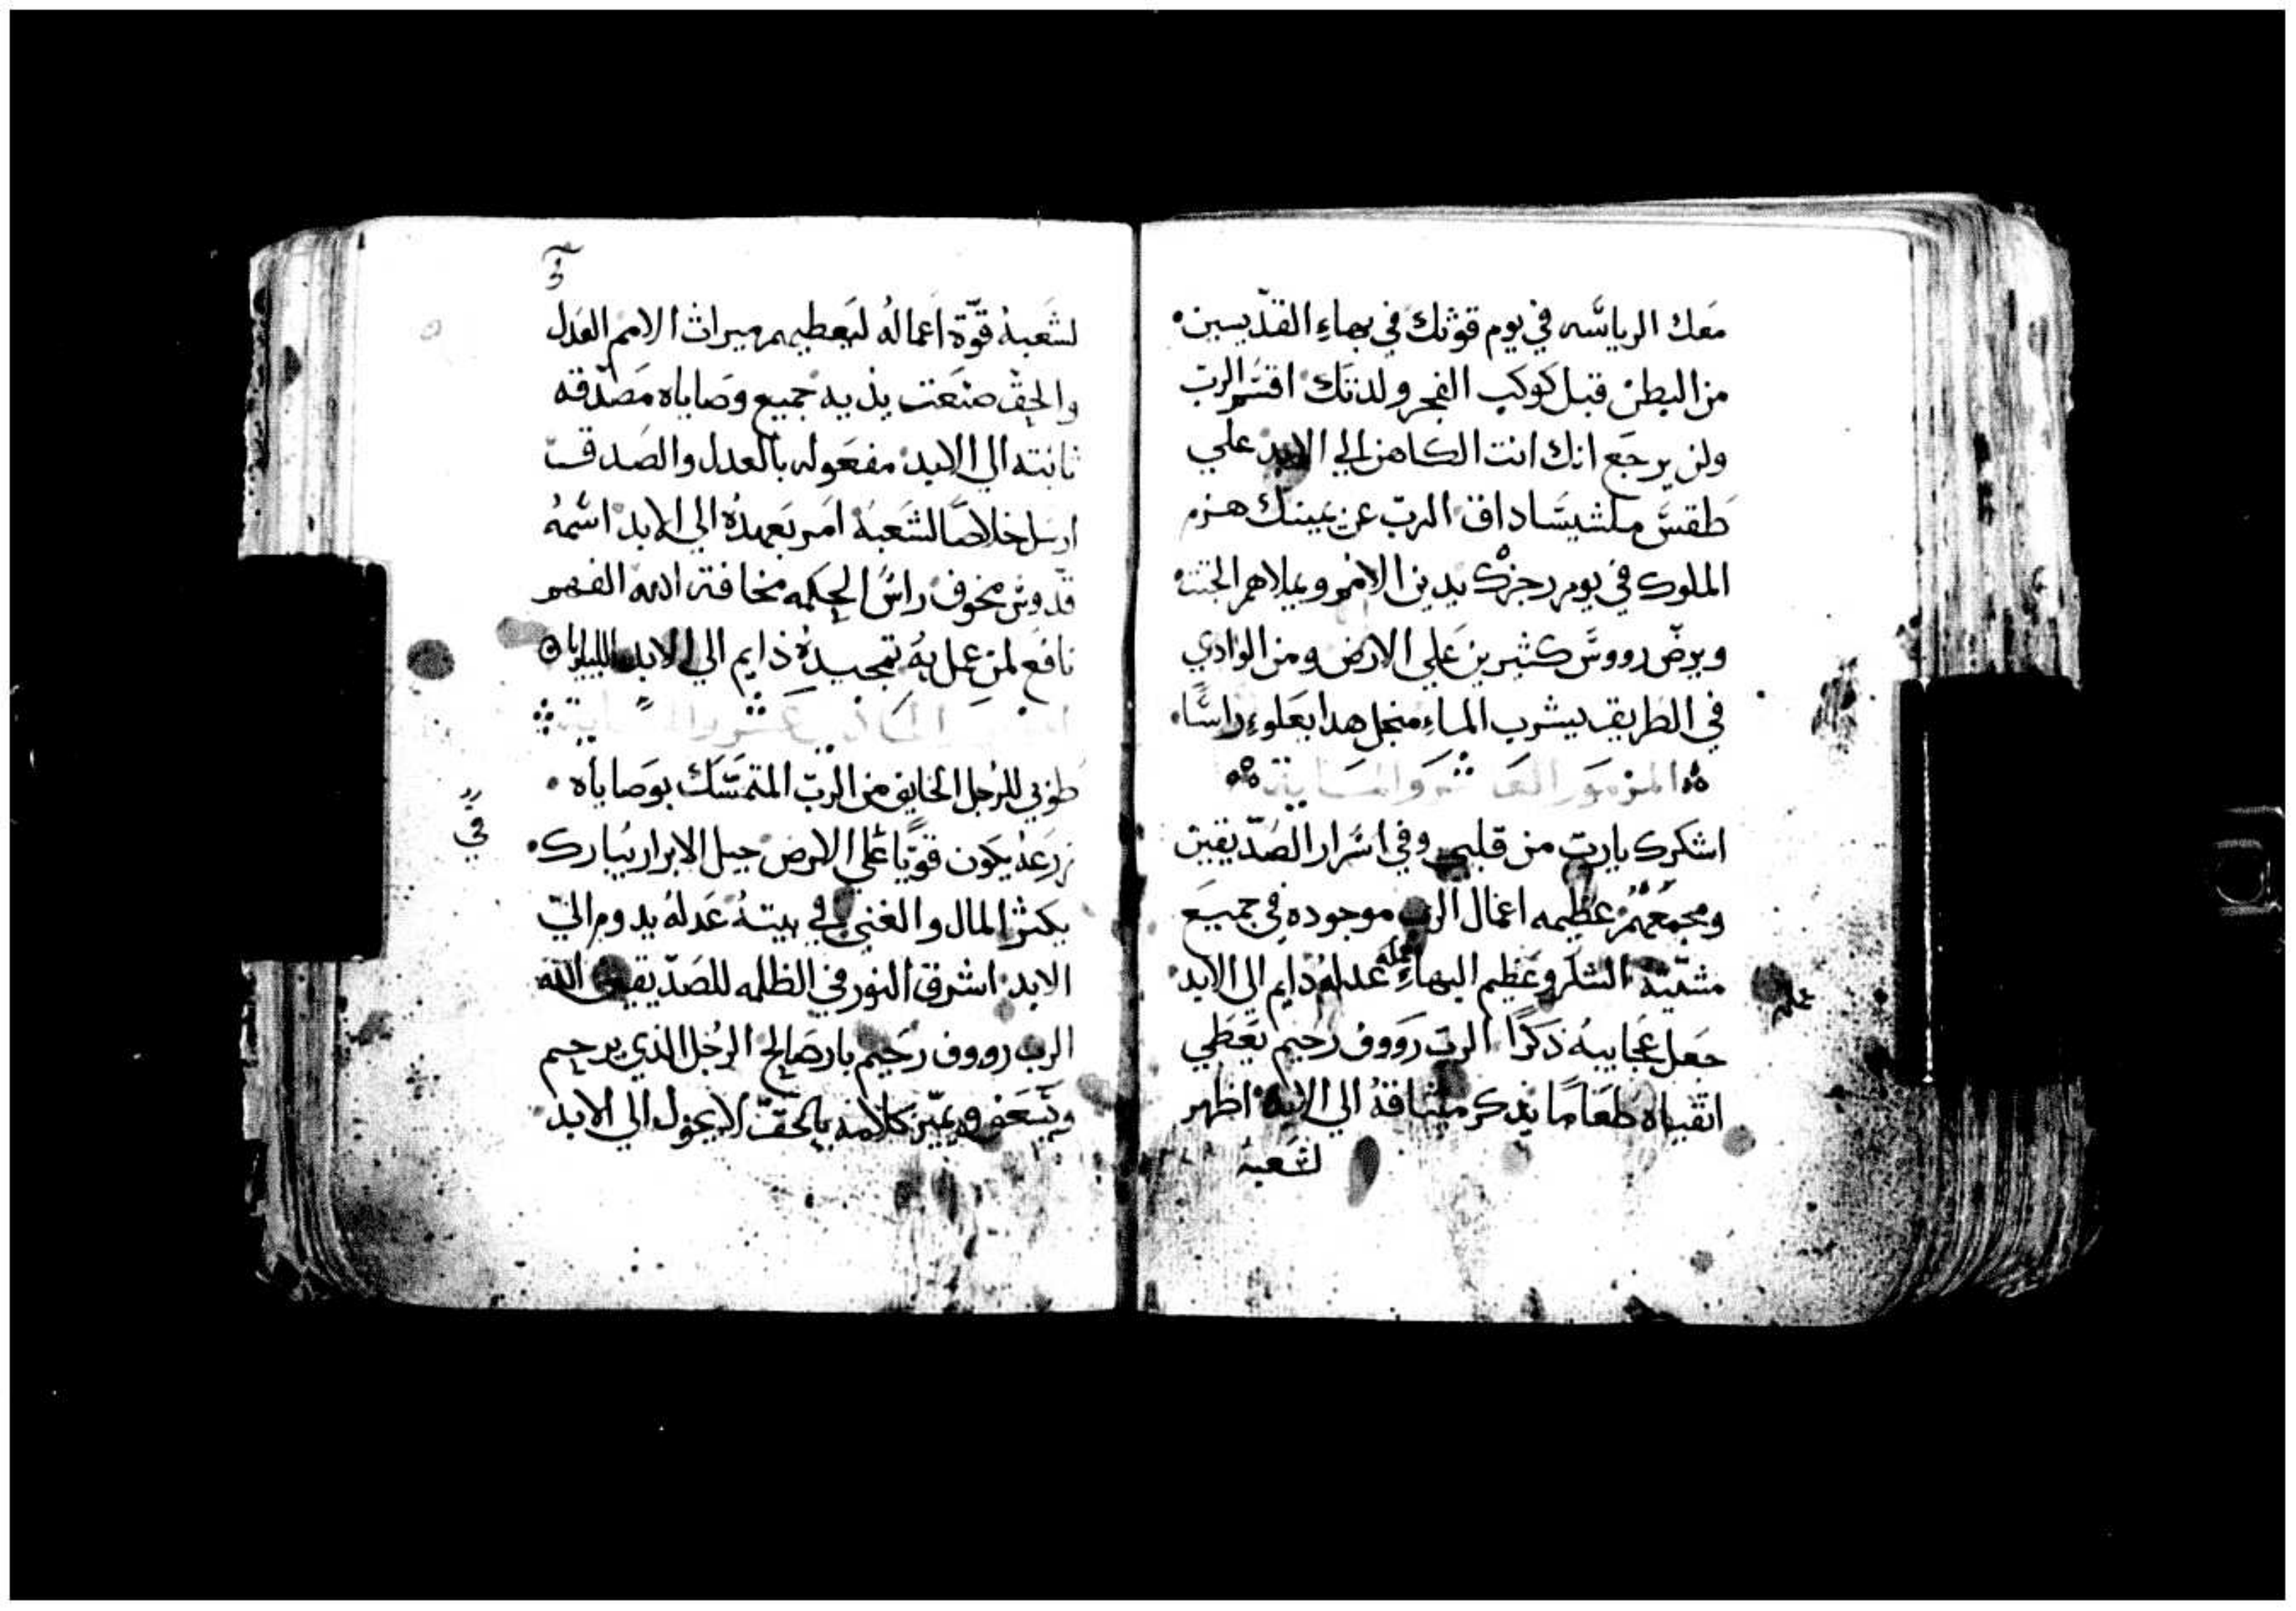 معك الرياسه في يوم قوتك في بهاءِ القدّيسين
من البطن قبل كوكب الفجر ولدتك اقسم الربّ
ولن يرجع انك انت الكاهن الي الابد علي
طقس ملشيساداق الربّ عن يمينك هزم
الملوك في يوم رجزك يدين الامم ويملاهم الجثث
ويرضّ رووس كثيرين علي الارض ومن الوادي
في الطريق يشرب الماء منجل هدا يعلوء راسًا
المزمور العاشر والمايه
اشكرك يارب من قلبي وفي اسرار الصّديقين
ومجمعهم عظيمه اعمال الرب موجوده في جميع
مشيّته الشكر وعظيم البهاءِ عمله عدله دايم الي الابد
جعل عجايبه ذكرًا الربّ رووف رحيم يعطي
اتقياه طعامًا يذكر ميثاقه الي الابد اظهر
لشعبه
لشعبه قوّة اعماله ليعطيهم ميراث الامم العدل
والحق صنعت يديه جميع وصاياه مصدّقه
ثابته الي الابد مفعوله بالعدل والصدق
ارسل خلاصًا لشعبه امر بعهده الي الابد اسمه
قدّوس مخوف راس الحكمه مخافة الله الفهم
نافع لمن عمل به تمجيده دايم الي الابد الليلويا
الحادي عشر والمايه
طوبي للرجل الخايف من الربّ المتمسّك بوصاياه
زرعه يكون قويًا علي الارض جيل الابرار يبارك
يكثر المال والغني في بيته عدله يدوم الي
الابد اشرق النور في الظلمه للصدّيقين الله
الرب رووف رحيم بار صالح الرجل الذي يرحم
ويسعف ويميّز كلامه بالحقّ لا يحول الي الابد